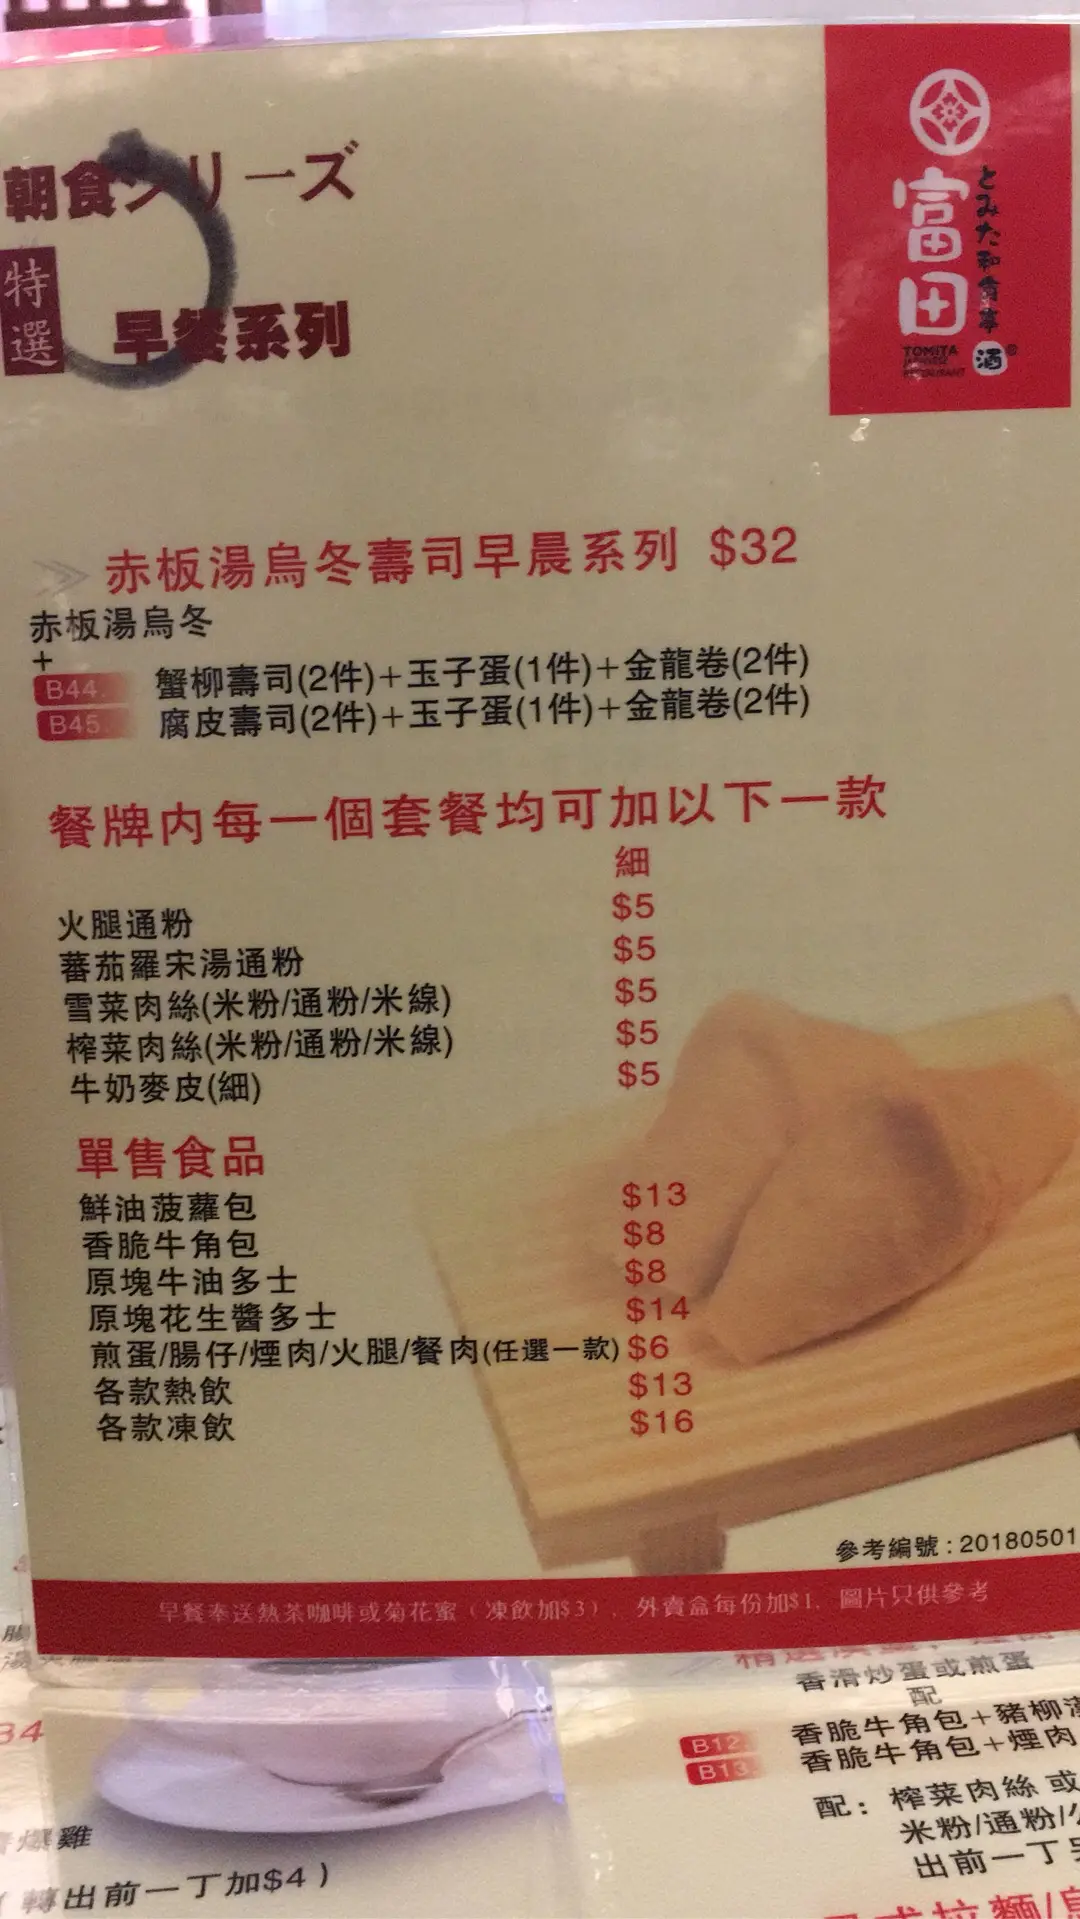 朝食シリーズ
特選
早餐系列
富田
とみた和食亭
TOMITA
JAPANESE
RESTAURANT
酒
赤板湯烏冬壽司早晨系列 $32
赤板湯烏冬
+
B44. 蟹柳壽司(2件)+玉子蛋(1件)+金龍卷(2件)
B45. 腐皮壽司(2件)+玉子蛋(1件)+金龍卷(2件)
餐牌內每一個套餐均可加以下一款
細
火腿通粉 $5
蕃茄羅宋湯通粉 $5
雪菜肉絲(米粉/通粉/米線) $5
榨菜肉絲(米粉/通粉/米線) $5
牛奶麥皮(細) $5
單售食品
鮮油菠蘿包 $13
香脆牛角包 $8
原塊牛油多士 $8
原塊花生醬多士 $14
煎蛋/腸仔/煙肉/火腿/餐肉(任選一款) $6
各款熱飲 $13
各款凍飲 $16
參考編號:20180501
早餐奉送熱茶咖啡或菊花蜜(凍飲加$3)﹐外賣盒每份加$1﹐圖片只供參考
香滑炒蛋或煎蛋
配
B12. 香脆牛角包+豬柳
B13. 香脆牛角包+煙肉
配: 榨菜肉絲 或
米粉/通粉/
出前一丁
34
爆雞
(轉出前一丁加$4)